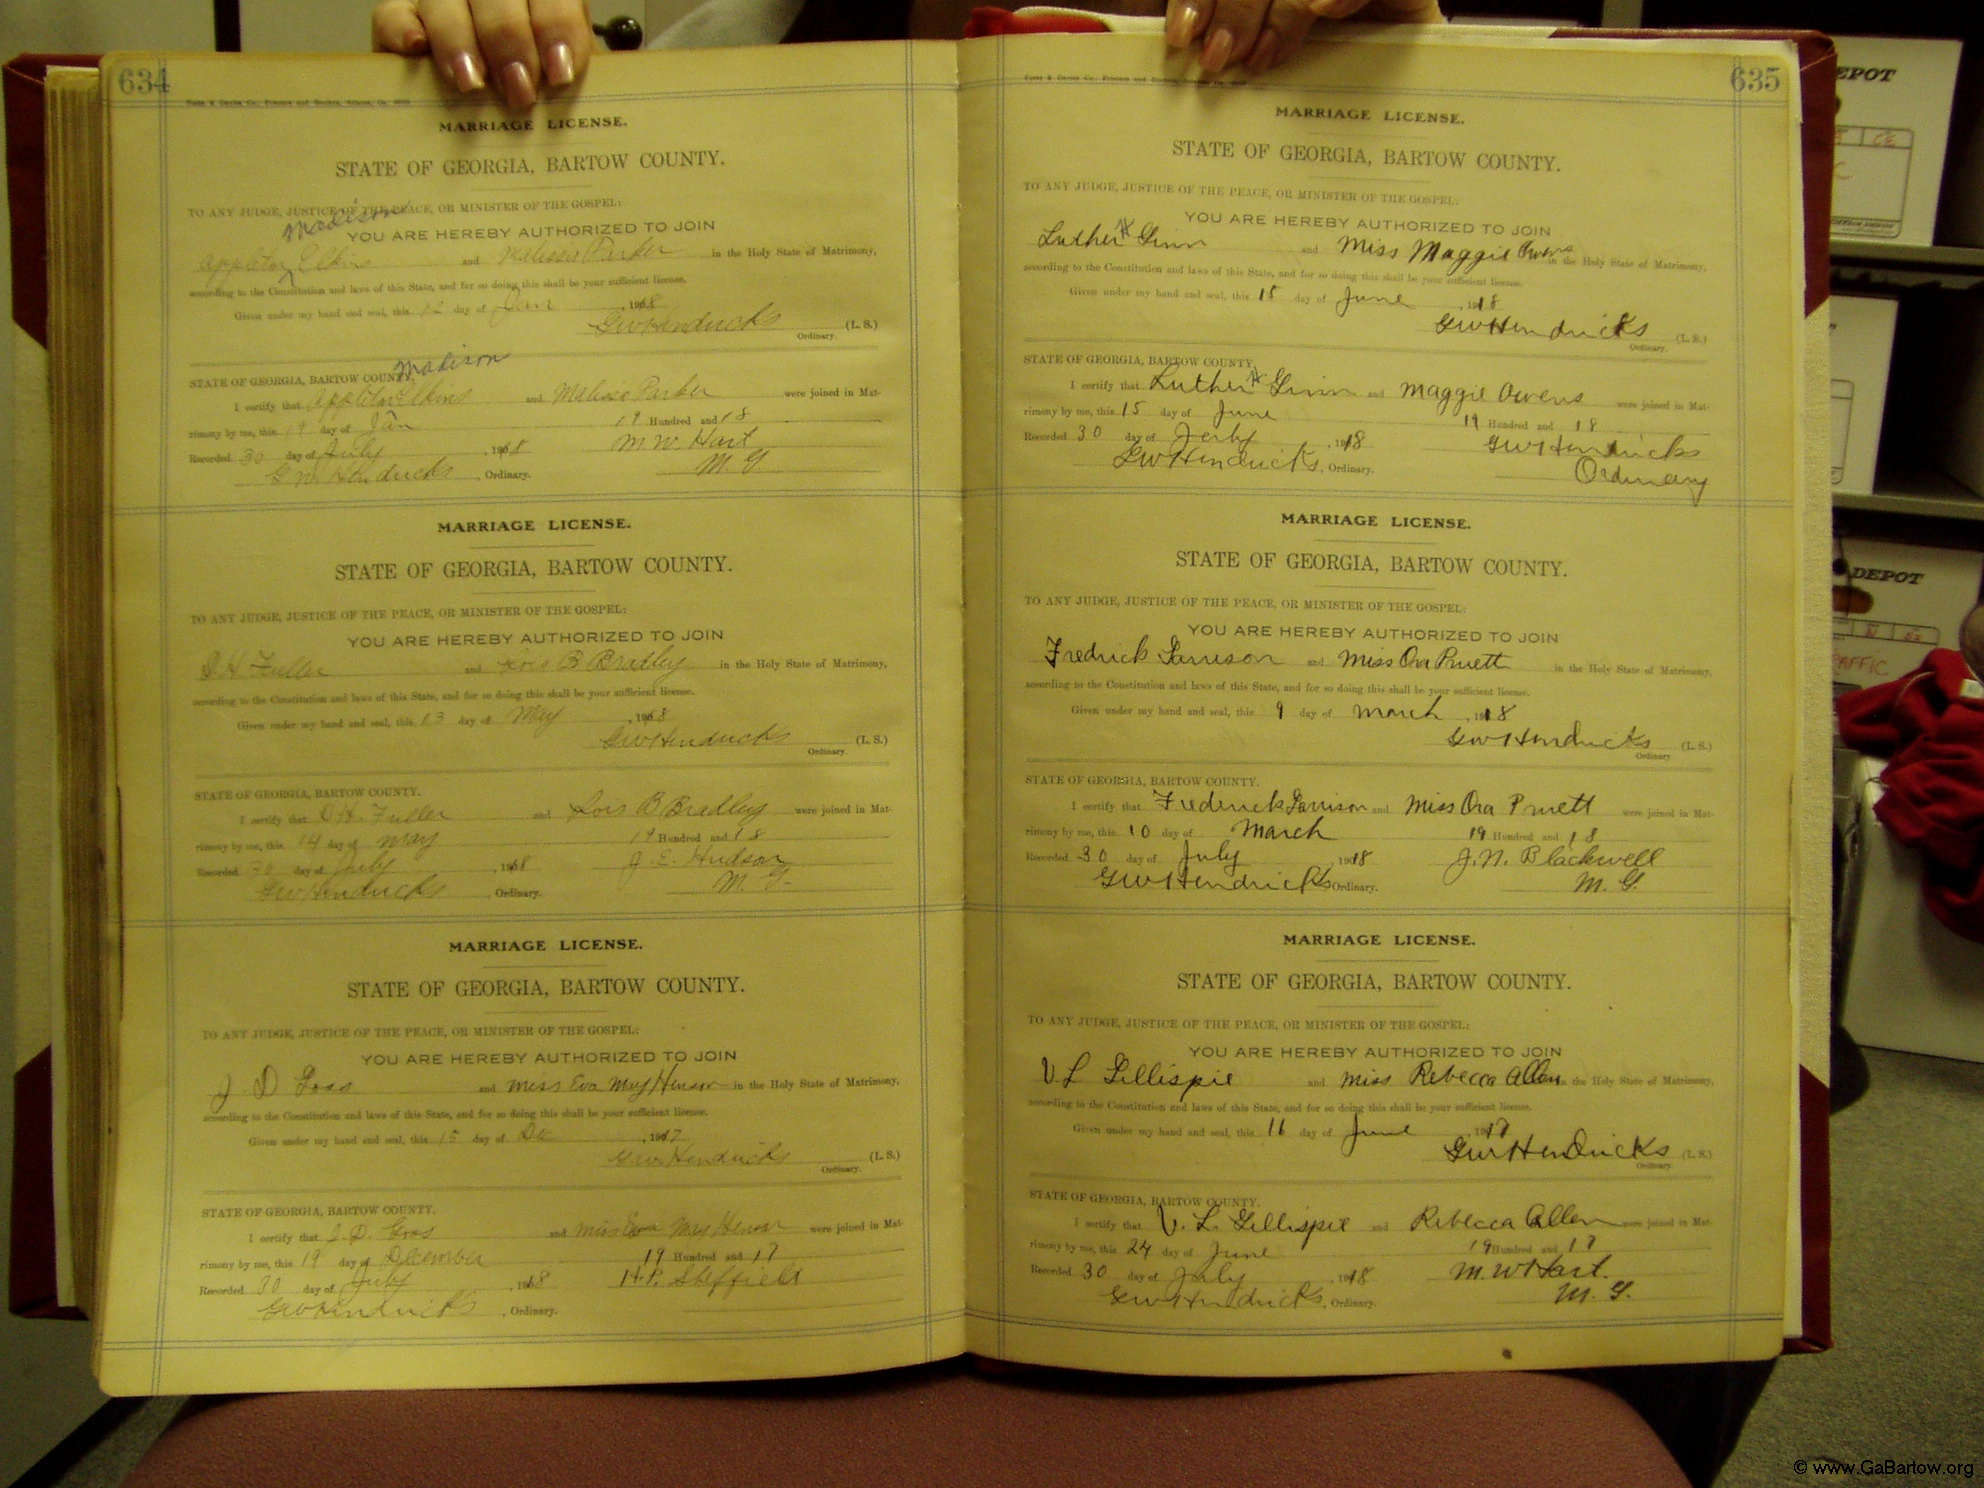 634
MARRIAGE LICENSE.
STATE OF GEORGIA, BARTOW COUNTY.
TO ANY JUDGE, JUSTICE OF THE PEACE, OR MINISTER OF THE GOSPEL:
Madison
YOU ARE HEREBY AUTHORIZED TO JOIN
Appleton Elkins and Melissa Parker in the Holy State of Matrimony,
according to the Constitution and laws of this State, and for so doing this shall be your sufficient license.
Given under my hand and seal, this 12 day of Jan, 1918
GW Hendricks (L. S.)
Ordinary.
Madison
STATE OF GEORGIA, BARTOW COUNTY.
I certify that Appleton Elkins and Melissa Parker were joined in Mat-
rimony by me, this 19 day of Jan 19 Hundred and 18
Recorded 30 day of July, 1918 M. W. Hart
G W Hendricks, Ordinary. M. G.
MARRIAGE LICENSE.
STATE OF GEORGIA, BARTOW COUNTY.
TO ANY JUDGE, JUSTICE OF THE PEACE, OR MINISTER OF THE GOSPEL:
YOU ARE HEREBY AUTHORIZED TO JOIN
D. H. Fuller and Lois B Bradley in the Holy State of Matrimony,
according to the Constitution and laws of this State, and for so doing this shall be your sufficient license.
Given under my hand and seal, this 13 day of May, 1918
GW Hendricks (L. S.)
Ordinary
STATE OF GEORGIA, BARTOW COUNTY.
I certify that D. H. Fuller and Lois B Bradley were joined in Mat-
rimony by me, this 14 day of May 19 Hundred and 18
Recorded 30 day of July, 1918 J. E. Hudson
GW Hendricks, Ordinary. M. G.
MARRIAGE LICENSE.
STATE OF GEORGIA, BARTOW COUNTY.
TO ANY JUDGE, JUSTICE OF THE PEACE, OR MINISTER OF THE GOSPEL:
YOU ARE HEREBY AUTHORIZED TO JOIN
J. D Goss and Miss Eva May Henson in the Holy State of Matrimony,
according to the Constitution and laws of this State, and for so doing this shall be your sufficient license.
Given under my hand and seal, this 15 day of Dec, 1917
GW Hendricks (L. S.)
Ordinary.
STATE OF GEORGIA, BARTOW COUNTY.
I certify that J. D. Goss and Miss Eva May Henson were joined in Mat-
rimony by me, this 19 day of December 19 Hundred and 17
Recorded 30 day of July, 1918 H. P. Sheffield
GW Hendricks, Ordinary.
635
MARRIAGE LICENSE.
STATE OF GEORGIA, BARTOW COUNTY.
TO ANY JUDGE, JUSTICE OF THE PEACE, OR MINISTER OF THE GOSPEL:
YOU ARE HEREBY AUTHORIZED TO JOIN
Luther H Ginn and Miss Maggie Owens in the Holy State of Matrimony,
according to the Constitution and laws of this State, and for so doing this shall be your sufficient license.
Given under my hand and seal, this 15 day of June, 1918
GW Hendricks (L. S.)
Ordinary.
STATE OF GEORGIA, BARTOW COUNTY.
I certify that Luther H Ginn and Maggie Owens were joined in Mat-
rimony by me, this 15 day of June 19 Hundred and 18
Recorded 30 day of July, 1918 GW Hendricks
GW Hendricks, Ordinary. Ordinary
MARRIAGE LICENSE.
STATE OF GEORGIA, BARTOW COUNTY.
TO ANY JUDGE, JUSTICE OF THE PEACE, OR MINISTER OF THE GOSPEL:
YOU ARE HEREBY AUTHORIZED TO JOIN
Fredrick Garrison and Miss Ora Pruett in the Holy State of Matrimony,
according to the Constitution and laws of this State, and for so doing this shall be your sufficient license.
Given under my hand and seal, this 9 day of March, 1918
GW Hendricks (L. S.)
Ordinary
STATE OF GEORGIA, BARTOW COUNTY.
I certify that Frederick Garrison and Miss Ora Pruett were joined in Mat-
rimony by me, this 10 day of March 19 Hundred and 18
Recorded 30 day of July, 1918 J. N. Blackwell
GW Hendricks Ordinary. M. G.
MARRIAGE LICENSE.
STATE OF GEORGIA, BARTOW COUNTY.
TO ANY JUDGE, JUSTICE OF THE PEACE, OR MINISTER OF THE GOSPEL:
YOU ARE HEREBY AUTHORIZED TO JOIN
V L Gillispie and Miss Rebecca Allen in the Holy State of Matrimony,
according to the Constitution and laws of this State, and for so doing this shall be your sufficient license.
Given under my hand and seal, this 16 day of June 1917
GW Hendricks (L. S.)
Ordinary.
STATE OF GEORGIA, BARTOW COUNTY.
I certify that V. L. Gillispie and Rebecca Allen were joined in Mat-
rimony by me, this 24 day of June 19 Hundred and 17
Recorded 30 day of July, 1918 M. W Hart.
GW Hendricks, Ordinary. M. G.
EPOT
DEPOT
© www.GaBartow.org